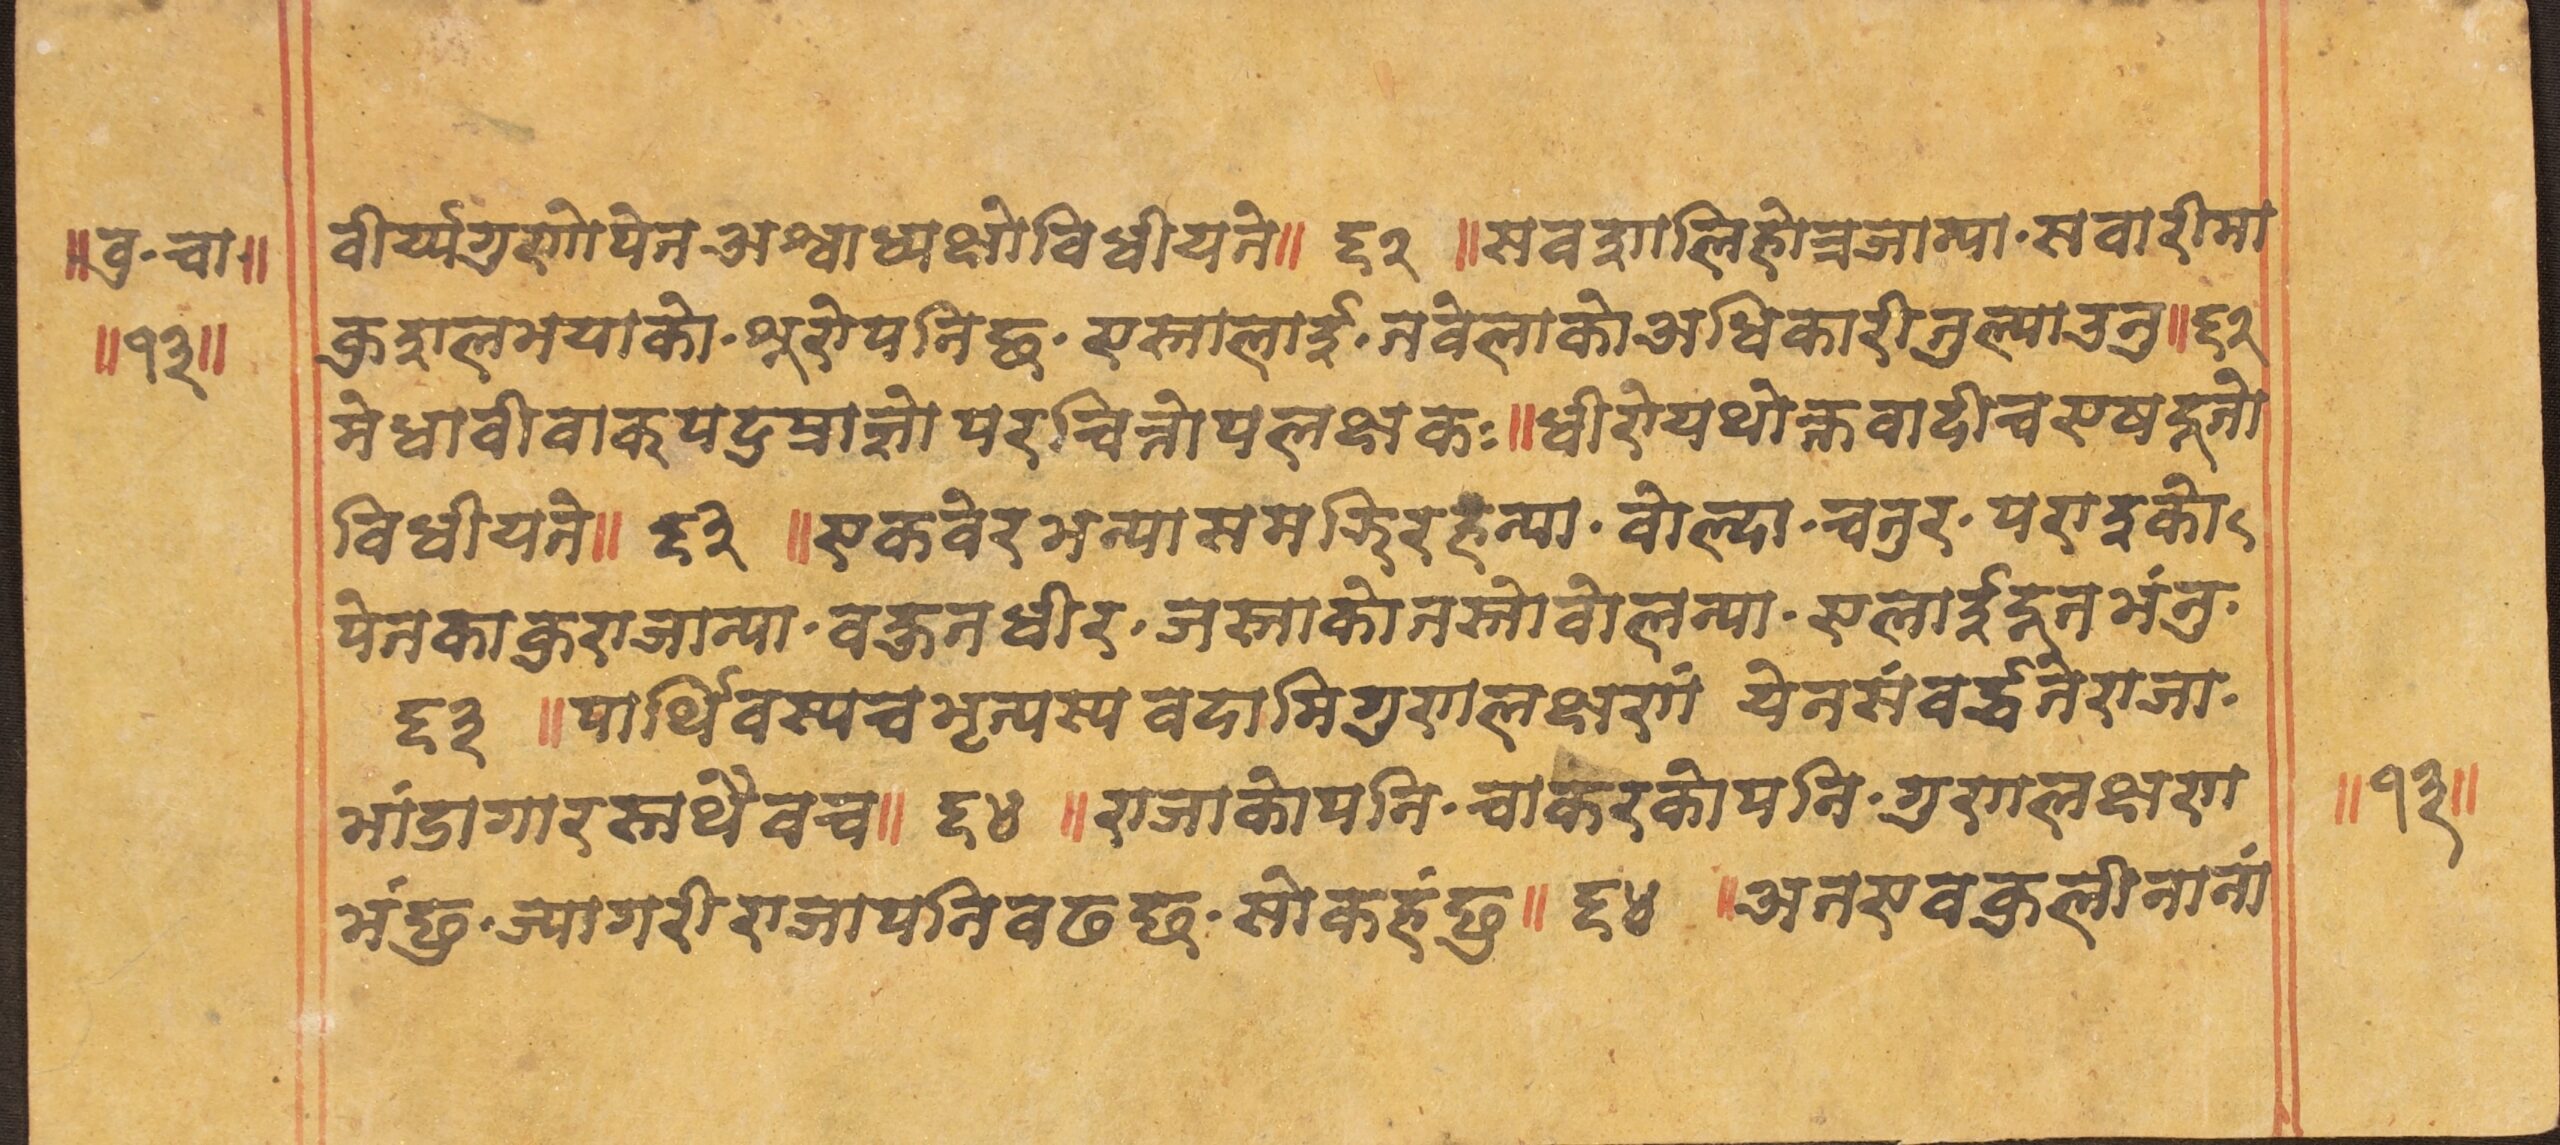 ॥वु·चा·॥
॥१३॥
वीर्य्यगुणोपेत अश्वाध्यक्षोविधीयते॥ ६२ ॥सवशालिहोत्रजान्या·सवारीमा
कुशलभयाको·शूरोपनिछ·एस्तालाई·तवेलाकोअधिकारीतुल्याउनु॥६२
मेधावीवाक्पटुप्राज्ञोपरचित्तोपलक्षकः॥धीरोयथोक्तवादीचएषदूतो
विधीयते॥ ६३ ॥एकवेरभन्यासमझिरहन्या·वोल्दा·चतुर·पराइको
पेतकाकुराजान्या·वहुतधीर·जस्ताकोतस्तोवोलन्या·एलाईदूतभंनु·
६३ ॥पार्थिवस्यचभृत्यस्यवदामिगुणलक्षणं येनसंवर्द्धतेराजा·
भांडागारस्तथैवच॥ ६४ ॥राजाकोपनि·चाकरकोपनि·गुणलक्षण
भंछु·ज्यागरीराजापनिवढछ·सोकहंछु॥ ६४ ॥अतएवकुलीनानां
॥१३॥